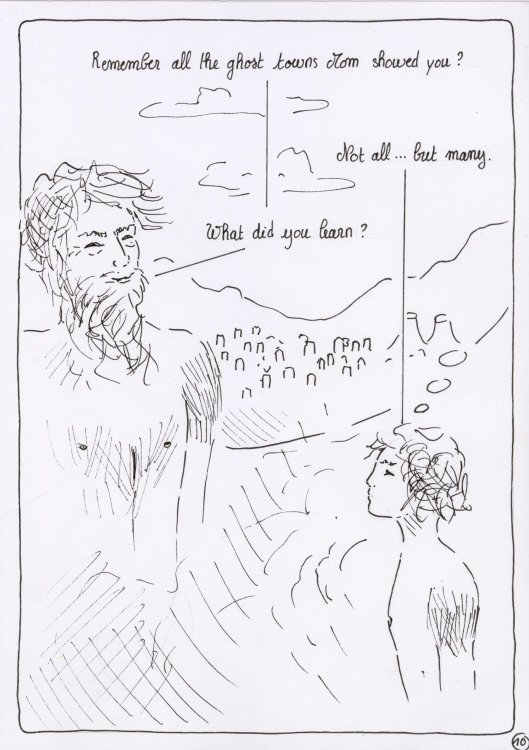 Remember all the ghost towns Mom showed you?
Not all... but many.
What did you learn?
10